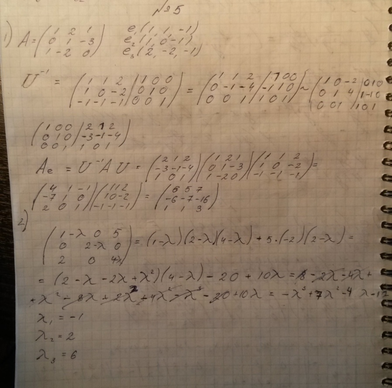 №5
1) A = (1 2 1 / 0 1 -3 / 1 -2 0) e₁(1, 1, -1) e₂(1, 0, -1) e₃(2, -2, -1)
U⁻¹ = (1 1 2 | 1 0 0 / 1 0 -2 | 0 1 0 / -1 -1 -1 | 0 0 1) = (1 1 2 | 1 0 0 / 0 -1 -4 | -1 1 0 / 0 0 1 | 1 0 1) ~ (1 0 -2 | 0 1 0 / 0 1 4 | 1 -1 0 / 0 0 1 | 1 0 1)
(1 0 0 | 2 1 2 / 0 1 0 | -3 -1 -4 / 0 0 1 | 1 0 1)
Aₑ = U⁻¹ A U = (2 1 2 / -3 -1 -4 / 1 0 1)(1 2 1 / 0 1 -3 / 1 -2 0)(1 1 2 / 1 0 -2 / -1 -1 -1) =
(4 1 -1 / -7 1 0 / 2 0 1)(1 1 2 / 1 0 -2 / -1 -1 -1) = (6 5 7 / -6 -7 -16 / 1 1 3)
2)
(1-λ 0 5 / 0 2-λ 0 / 2 0 4-λ) = (1-λ)(2-λ)(4-λ) + 5·(-2)(2-λ) =
= (2 - λ - 2λ + λ²)(4-λ) - 20 + 10λ = 8 - 2λ - 4λ +
λ₁ = -1
λ₂ = 2
λ₃ = 6